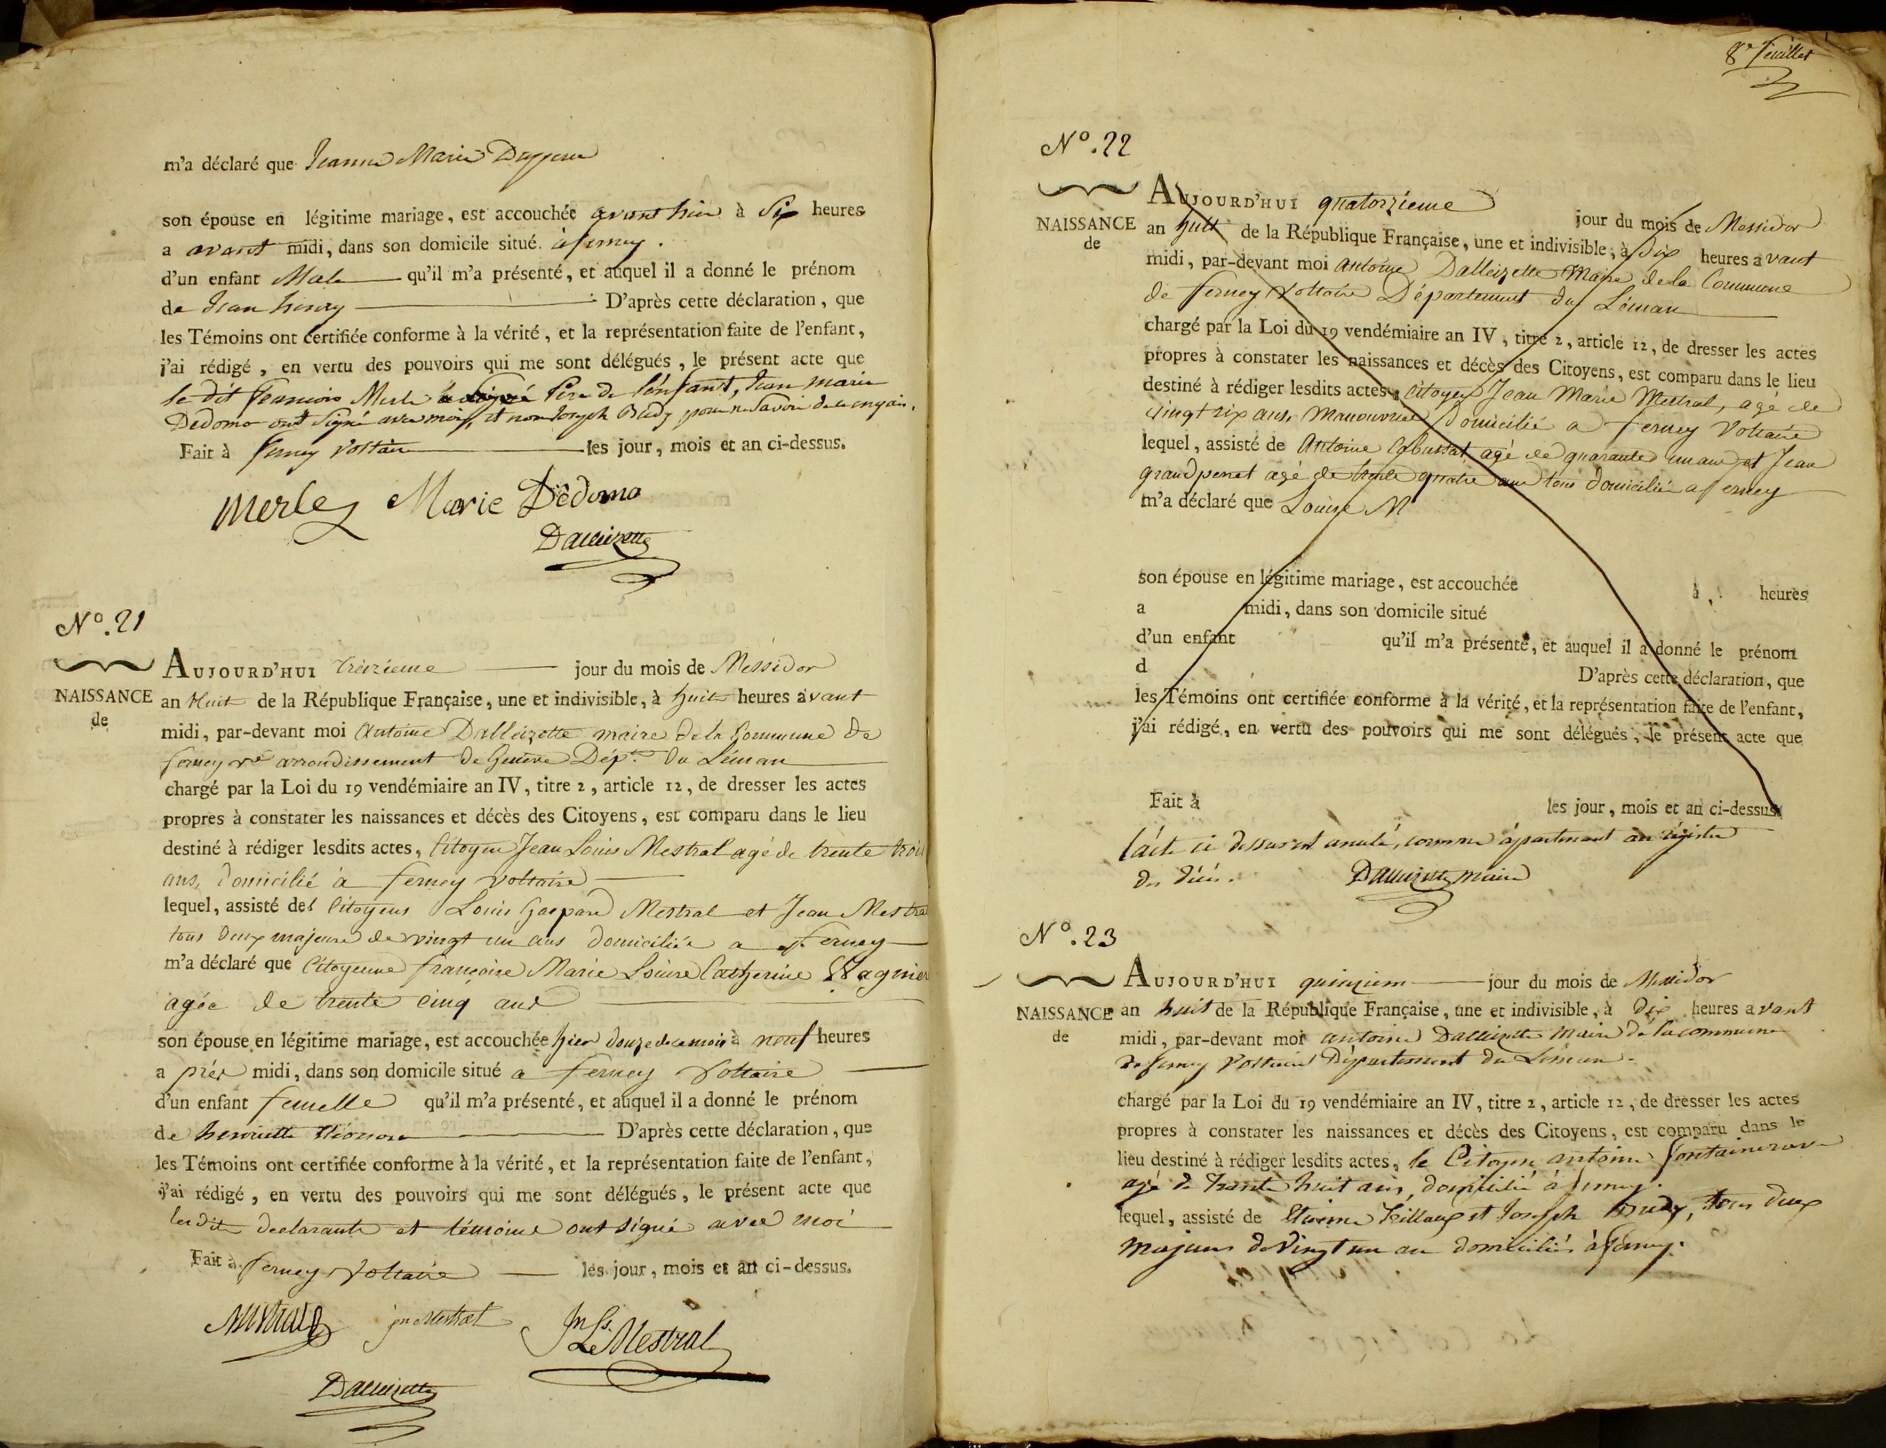 m'a déclaré que Jeanne Marie
son épouse en légitime mariage, est accouchée avant hier à Six heures
a avant midi, dans son domicile situé à ferney.
d'un enfant Male qu'il m'a présenté, et auquel il a donné le prénom
de Jean henry D'après cette déclaration, que
les Témoins ont certifiée conforme à la vérité, et la représentation faite de l'enfant,
j'ai rédigé, en vertu des pouvoirs qui me sont délégués, le présent acte que
le dit francois Merle Père de l'enfant, Jean marie
Dédomo ont signé avec moi, et non Joseph Budy pour ne savoir de ce enquis.
Fait à ferney Voltaire les jour, mois et an ci-dessus.
Merle Marie Dêdomo
Dalleizette
N°. 21
NAISSANCE
de
AUJOURD'HUI treizieme jour du mois de Messidor
an huit de la République Française, une et indivisible, à huit heures avant
midi, par-devant moi Antoine Dalleizette maire de la Commune de
ferney Vre arrondissement de Genève Dépt. du Léman
chargé par la Loi du 19 vendémiaire an IV, titre 2, article 12, de dresser les actes
propres à constater les naissances et décès des Citoyens, est comparu dans le lieu
destiné à rédiger lesdits actes, Citoyen Jean Louis Mestral agé de trente trois
ans, domicilié à ferney Voltaire
lequel, assisté des Citoyens Louis Gaspard Mestral et Jean Mestral
tous deux majeurs de vingt un ans domiciliés a ferney
m'a déclaré que Citoyenne françoise Marie Louise Catherine Wagnier
agée de trente cinq ans
son épouse en légitime mariage, est accouchée hier douze de ce mois à neuf heures
a près midi, dans son domicile situé a ferney Voltaire
d'un enfant femelle qu'il m'a présenté, et auquel il a donné le prénom
de henriette Eléonore D'après cette déclaration, que
les Témoins ont certifiée conforme à la vérité, et la représentation faite de l'enfant,
j'ai rédigé, en vertu des pouvoirs qui me sont délégués, le présent acte que
lesdits declarants et témoins ont signé avec moi
Fait à ferney Voltaire les jour, mois et an ci-dessus.
Mestral jn Mestral Jn Ls Mestral
Dalleizette
8e feuillet
N°. 22
NAISSANCE
de
AUJOURD'HUI quatorzieme jour du mois de Messidor
an huit de la République Française, une et indivisible, à Dix heures avant
midi, par-devant moi antoine Dalleizette Maire de la Commune
de ferney Voltaire Département du Léman
chargé par la Loi du 19 vendémiaire an IV, titre 2, article 12, de dresser les actes
propres à constater les naissances et décès des Citoyens, est comparu dans le lieu
destiné à rédiger lesdits actes, Citoyen Jean Marie Mestral, agé de
vingt six ans, manouvrier Domicilié a ferney Voltaire
lequel, assisté de Antoine Cabussat agé de quarante un ans et Jean
grandperret agé de trente quatre ans tous domiciliés a ferney
m'a déclaré que Louise M
son épouse en légitime mariage, est accouchée à heures
a midi, dans son domicile situé
d'un enfant qu'il m'a présenté, et auquel il a donné le prénom
d D'après cette déclaration, que
les Témoins ont certifiée conforme à la vérité, et la représentation faite de l'enfant,
j'ai rédigé, en vertu des pouvoirs qui me sont délégués, le présent acte que
Fait à les jour, mois et an ci-dessus.
l'acte ci dessus est anulé, comme apartenant au régistre
des décés. Dalleizette maire
N°. 23
NAISSANCE
de
AUJOURD'HUI quinziem jour du mois de Messidor
an huit de la République Française, une et indivisible, à Dix heures avant
midi, par-devant moi antoine Dalleizette Maire de la commune
de ferney Voltaire Département du Léman.
chargé par la Loi du 19 vendémiaire an IV, titre 2, article 12, de dresser les actes
propres à constater les naissances et décès des Citoyens, est comparu dans le
lieu destiné à rédiger lesdits actes, le Citoyen antoine
agé de trente huit ans, domicilié à ferney.
lequel, assisté de Etienne et Joseph Budy, tous deux
majeurs de Vingt un an domiciliés à ferney.